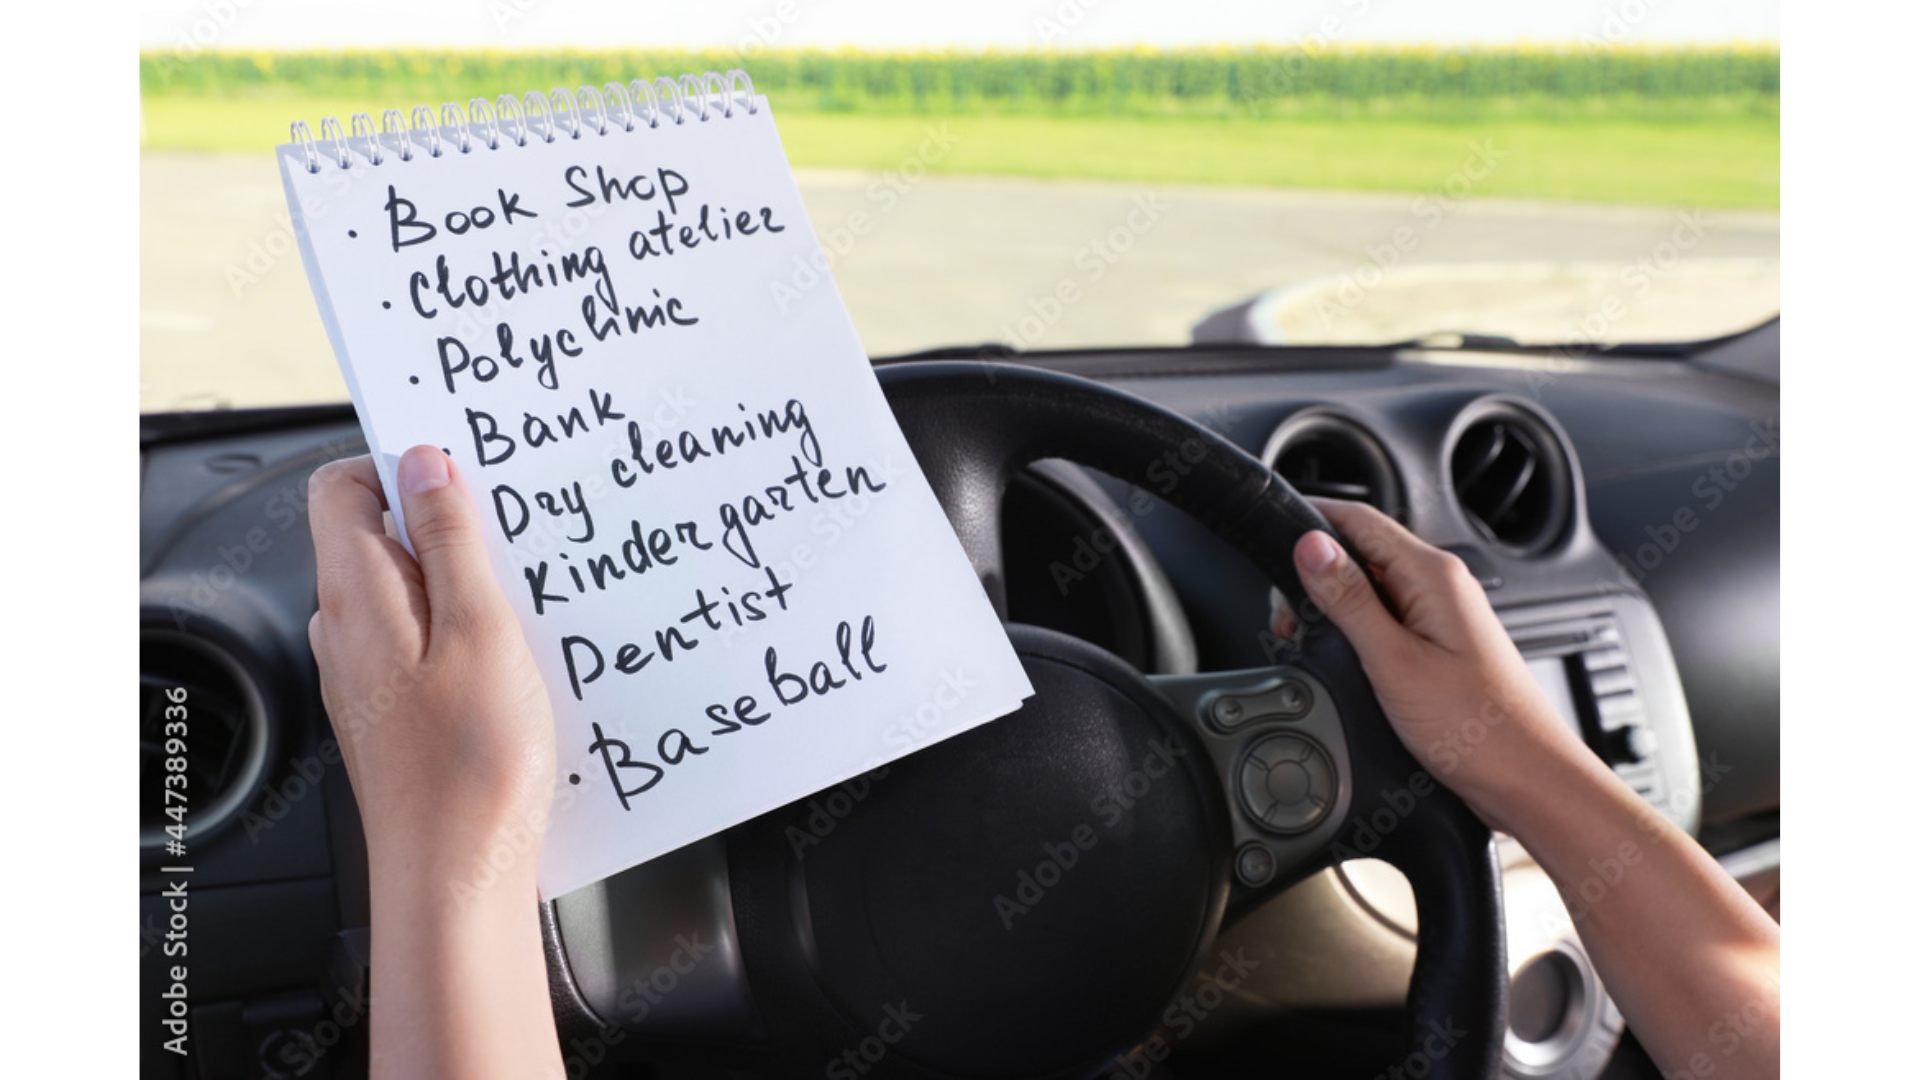 · Book Shop
· Clothing atelier
· Polyclinic
· Bank
Dry cleaning
Kindergarten
Dentist
· Baseball
Adobe Stock | #447389336